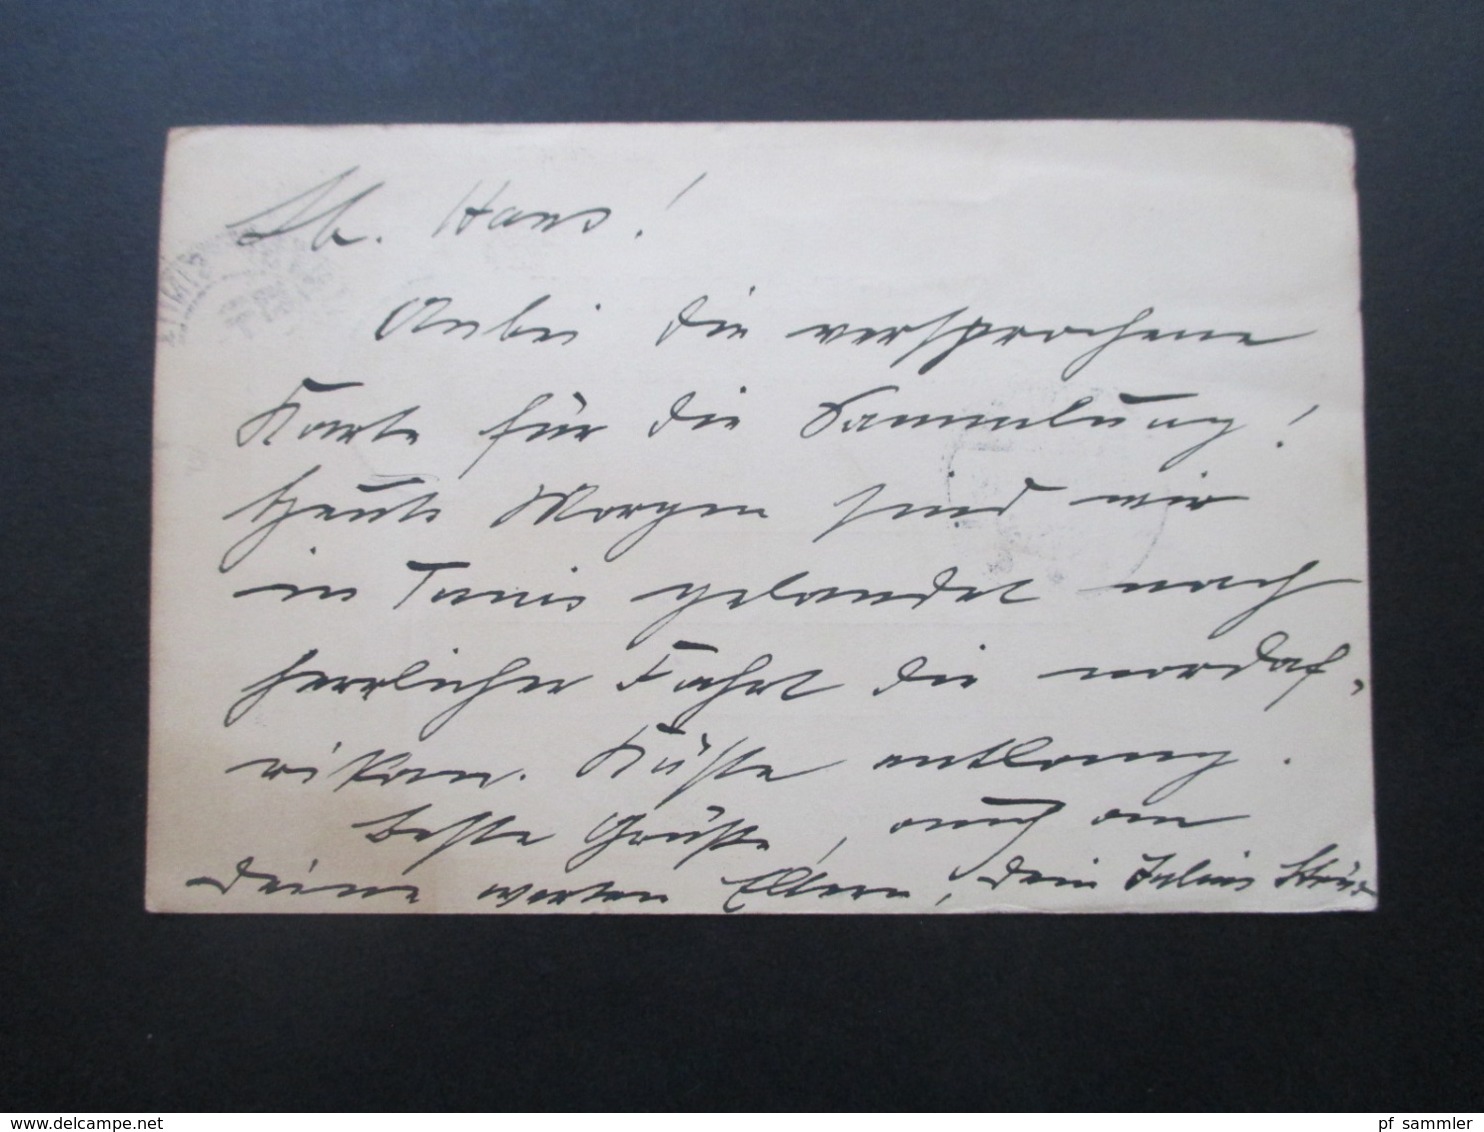 Lb. Hans!
Anbei die versprochene
Karte für die Sammlung!
Heute Morgen sind wir
in Tunis gelandet nach
herrlicher Fahrt die nordaf-
rikan. Küste entlang.
Beste Grüße, auch an
Deine werten Eltern, Dein Julius
TUNIS
pf_sammler